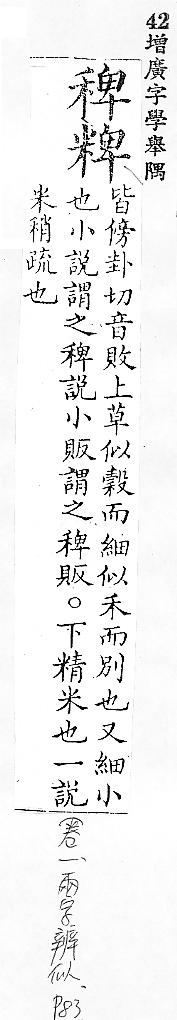 42增廣字學舉隅
稗粺
皆傍卦切音敗上草似穀而細似禾而別也又細小
也小說謂之稗說小販謂之稗販。下精米也一說
米稍疏也
卷一、兩字辨似、P83